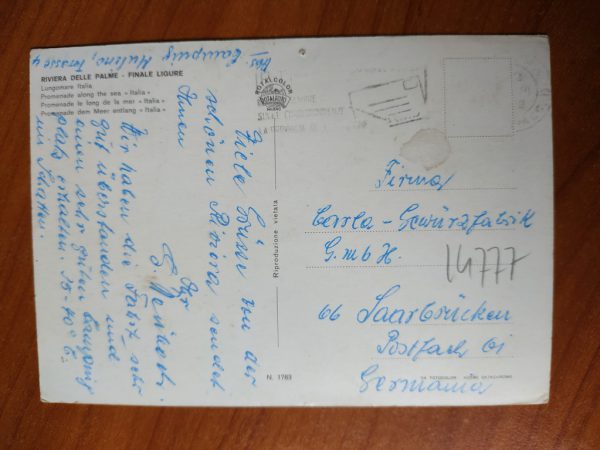 RIVIERA DELLE PALME - FINALE LIGURE
Lungomare Italia
Promenade along the sea « Italia »
Promenade le long de la mer « Italia »
Promenade dem Meer entlang « Italia »
ROTALCOLOR
Camping
Viele Grüsse von der
schönen Riviera sendet
Ihnen
Ihr
Wir haben die Fahrt sehr
gut überstanden und
einen sehr guten Camping
platz erhalten. 35-40° C.
im Schatten.
Riproduzione vietata
N. 1783
Firma
Carla-Gewürzfabrik
G.m.b.H.
14777
66 Saarbrücken
Postfach 61
Germania